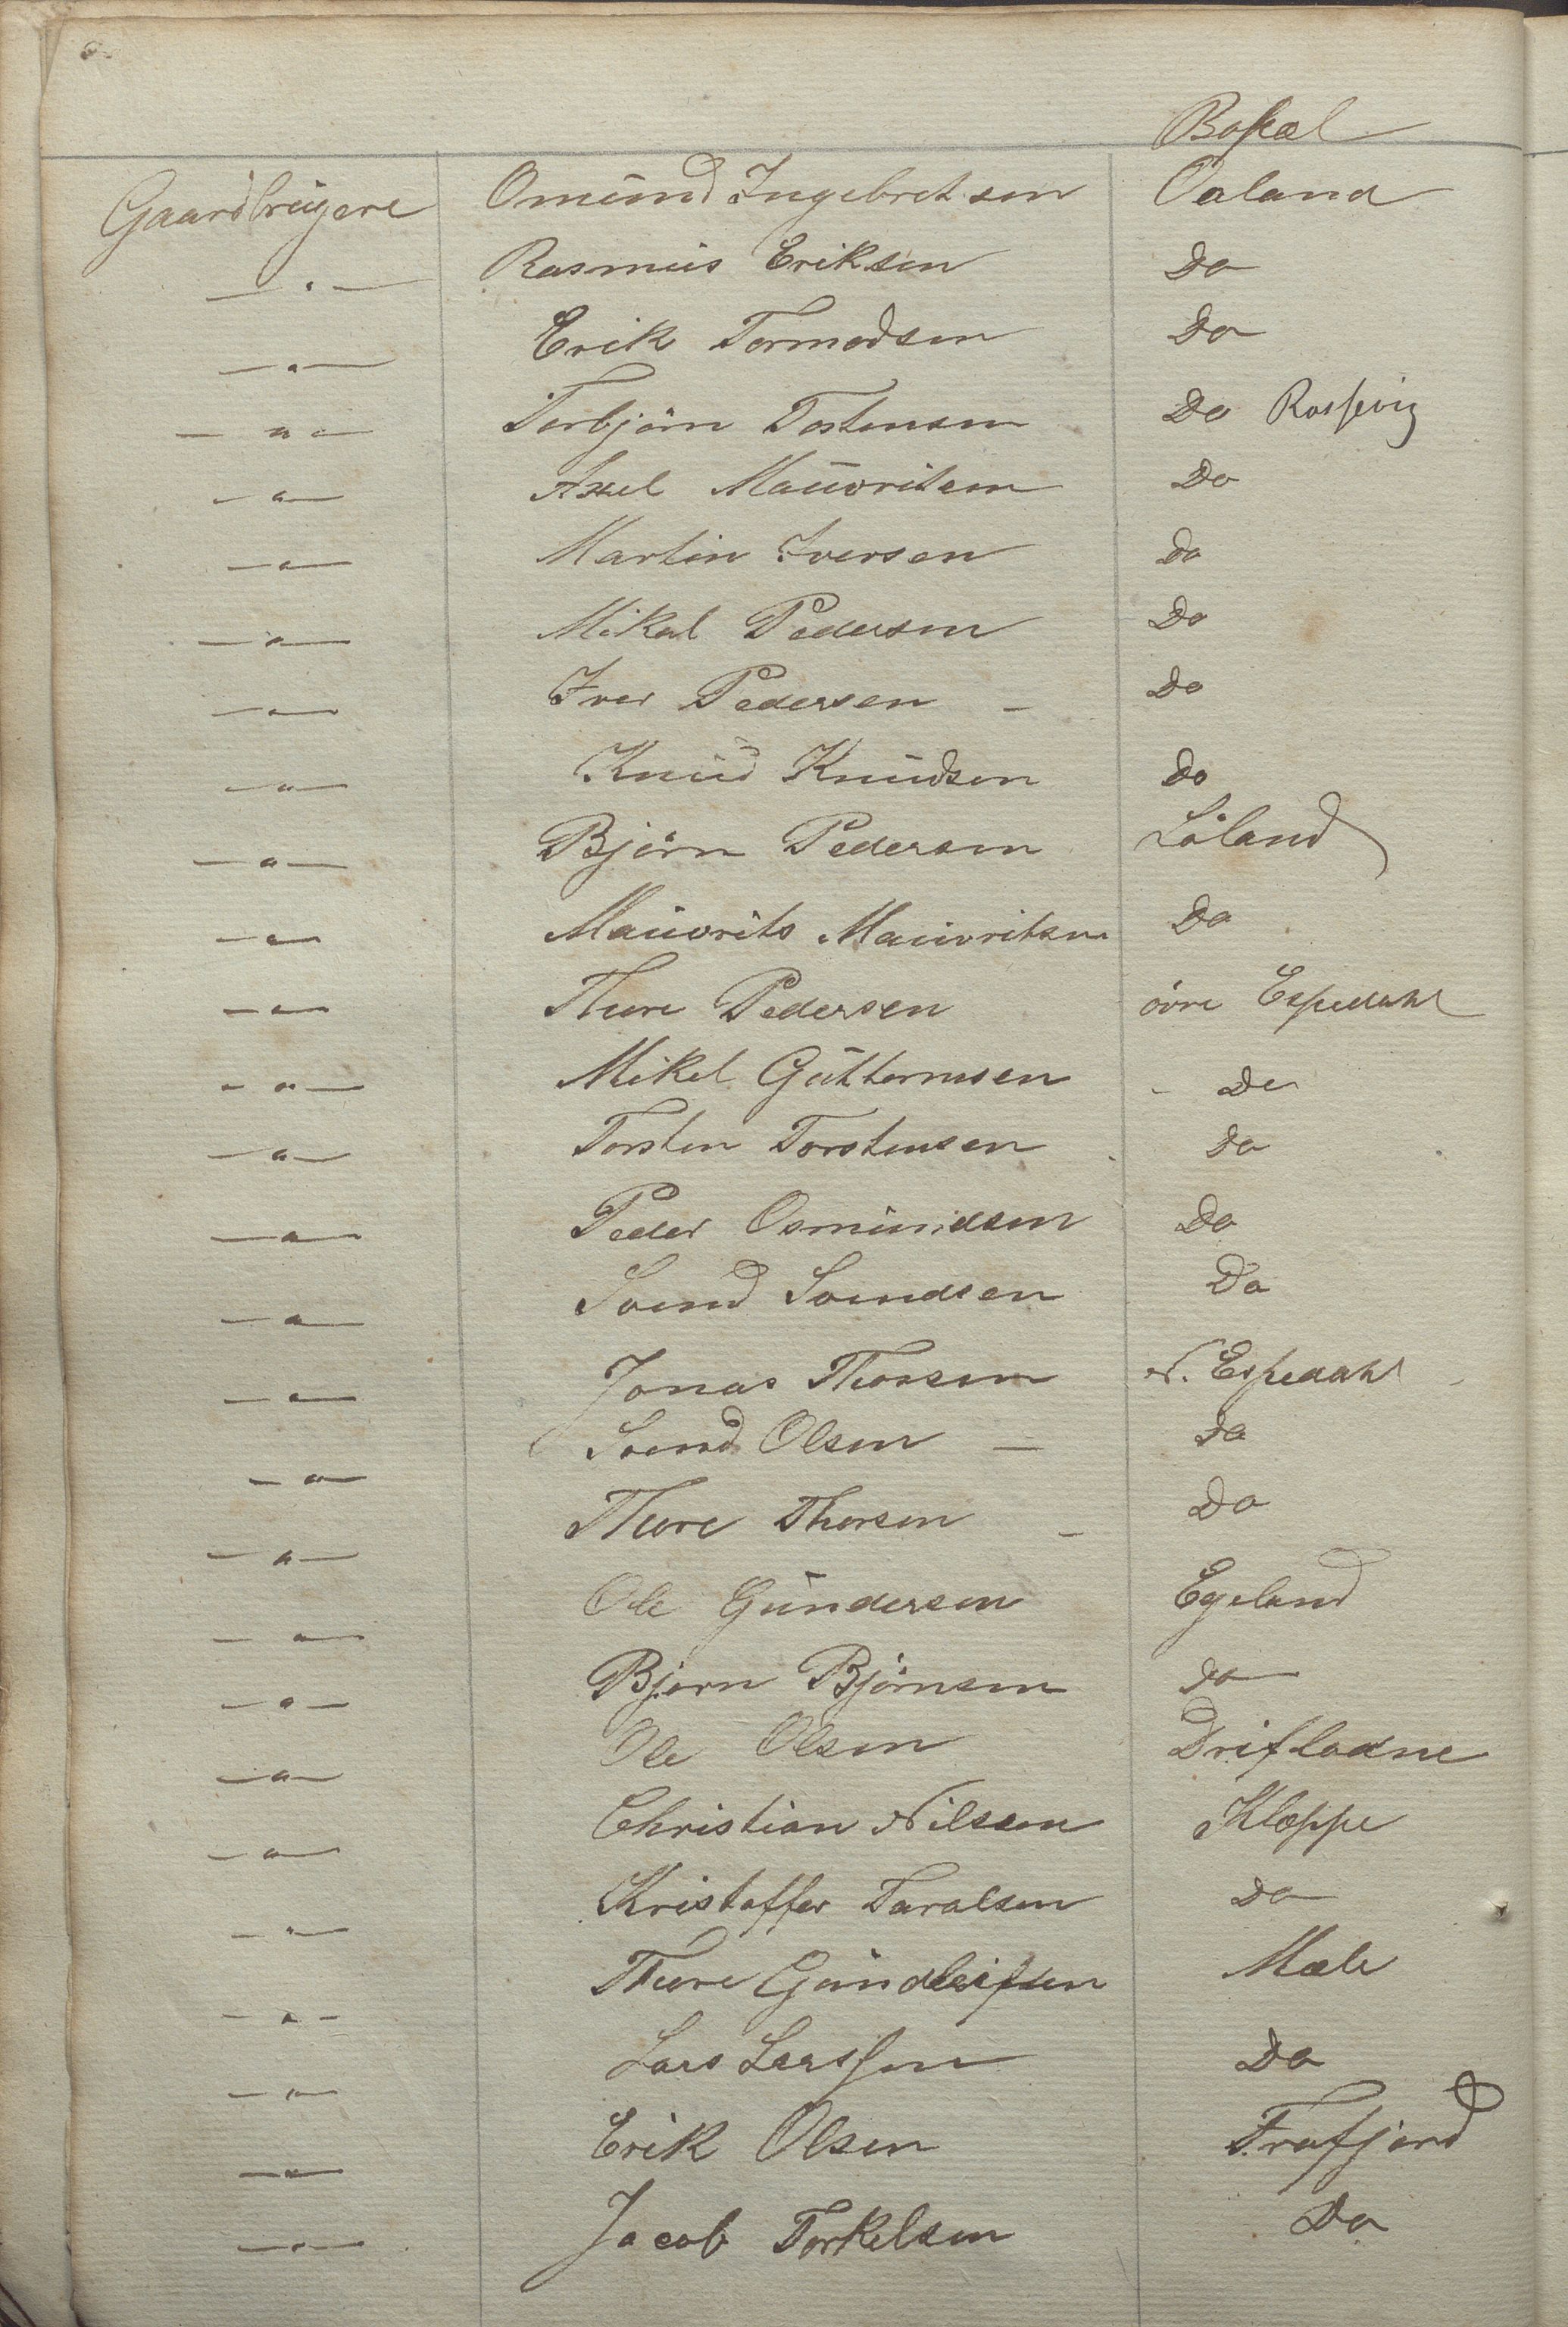 Bopæl
Gaardbrugere Omund Ingebretsen Oaland
— " — Rasmus Eriksen Do
— " — Erik Tormodsen Do
— " — Torbjörn Tostensen Do Rossevig
— " — Axel Mauvritsen Do
— " — Martin Iversen do
— " — Mikal Pedersen Do
— " — Iver Pedersen – Do
— " — Knud Knudsen do
— " — Björn Pedersen Löland
— " — Mauvrits Mauvritsen Do
— " — Thore Pedersen övre Espedahl
— " — Mikel Guttormsen – Do
— " — Torsten Torstensen Do
— " — Peder Osmundsen Do
— " — Svend Svendsen Do
— " — Jonas Thorsen N. Espedahl
— " — Svend Olsen — do
— " — Thore Thorsen – Do
— " — Ole Gundersen Egeland
— " — Bjorn Björnsen do
— " — Ole Olsen Drifladne
— " — Christian Nilsen Kloppe
— " — Kristoffer Taralsen Do
— " — Thore Gundleifsen Mæle
— " — Lars Larssen Do
— " — Erik Olsen Frafjord
— " — Jacob Torkelsen Do